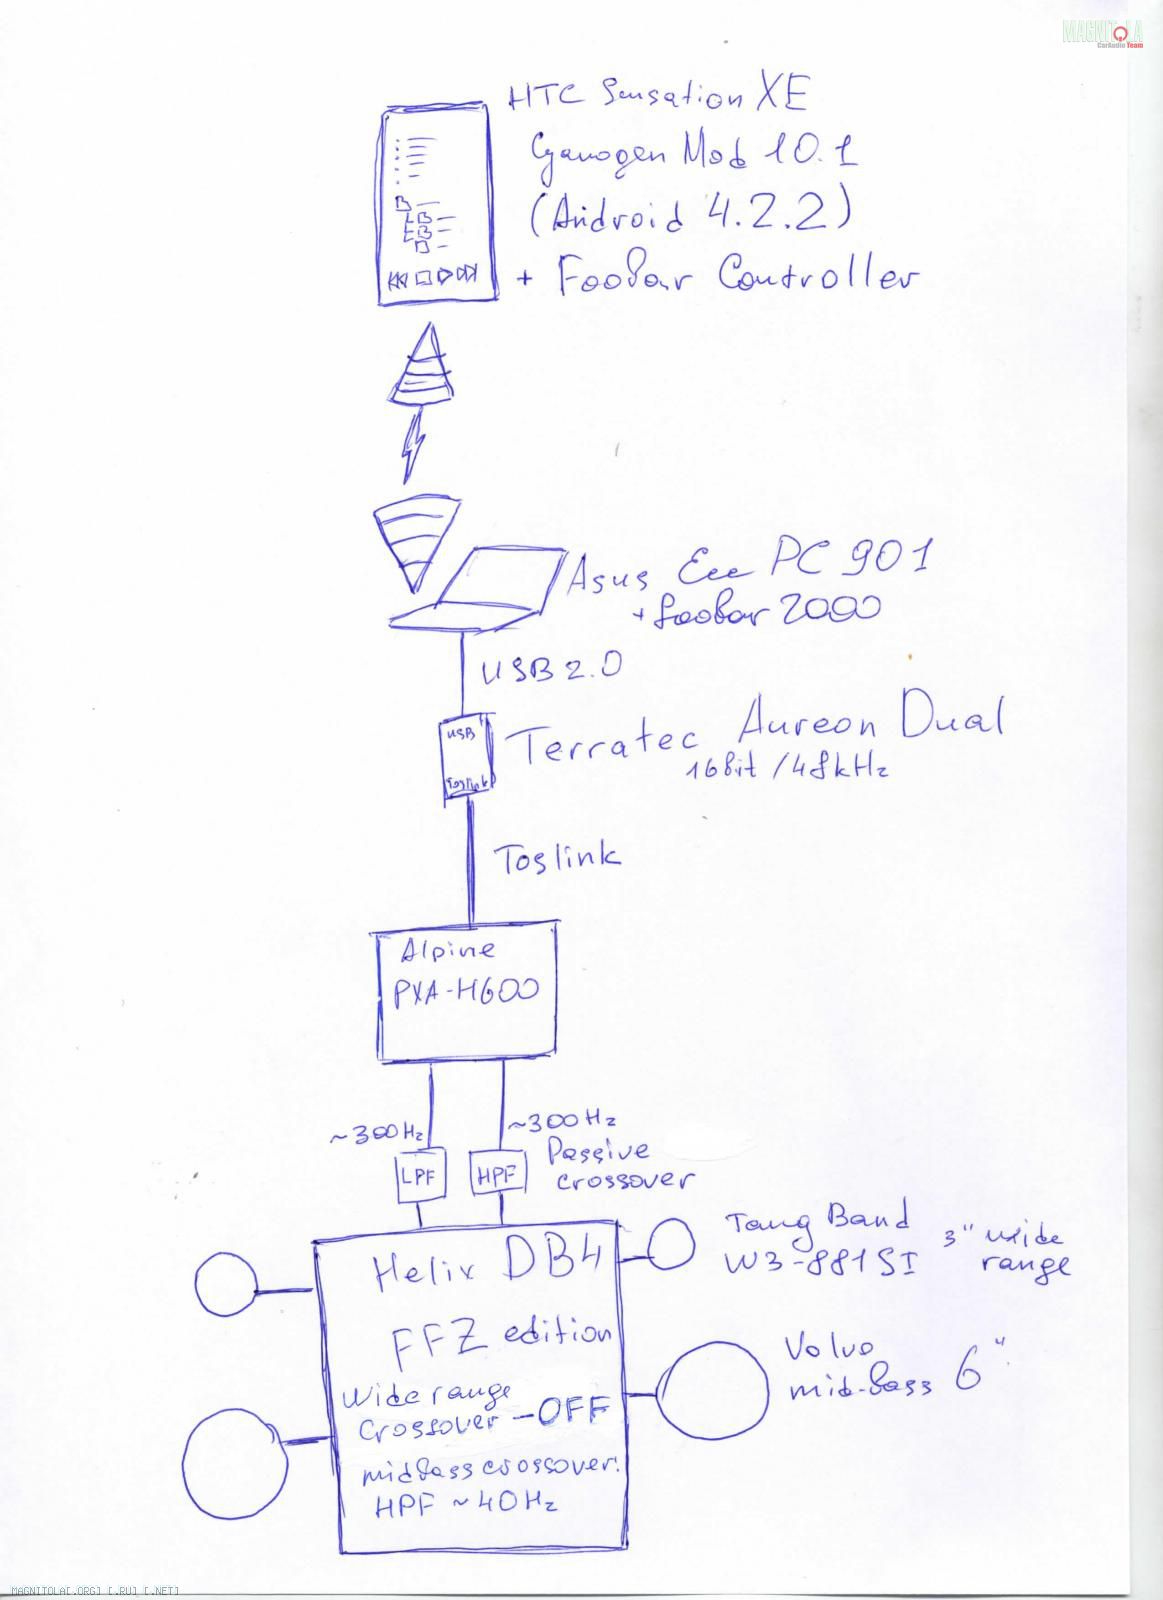 MAGNITOLA
CarAudio Team
HTC Sensation XE
Cyanogen Mod 10.1
(Android 4.2.2)
+ Foobar Controller
Asus Eee PC 901
+ foobar 2000
USB 2.0
USB
Toslink
Terratec Aureon Dual
16bit / 48kHz
Toslink
Alpine
PXA-H600
~300Hz
~300Hz
Passive
crossover
LPF
HPF
Tang Band
W3-881SI
3" wide
range
Helix DB4
FFZ edition
Wide range
Crossover - OFF
midbass crossover:
HPF ~40Hz
Volvo
mid-bass 6"
MAGNITOLA[.ORG] [.RU] [.NET]